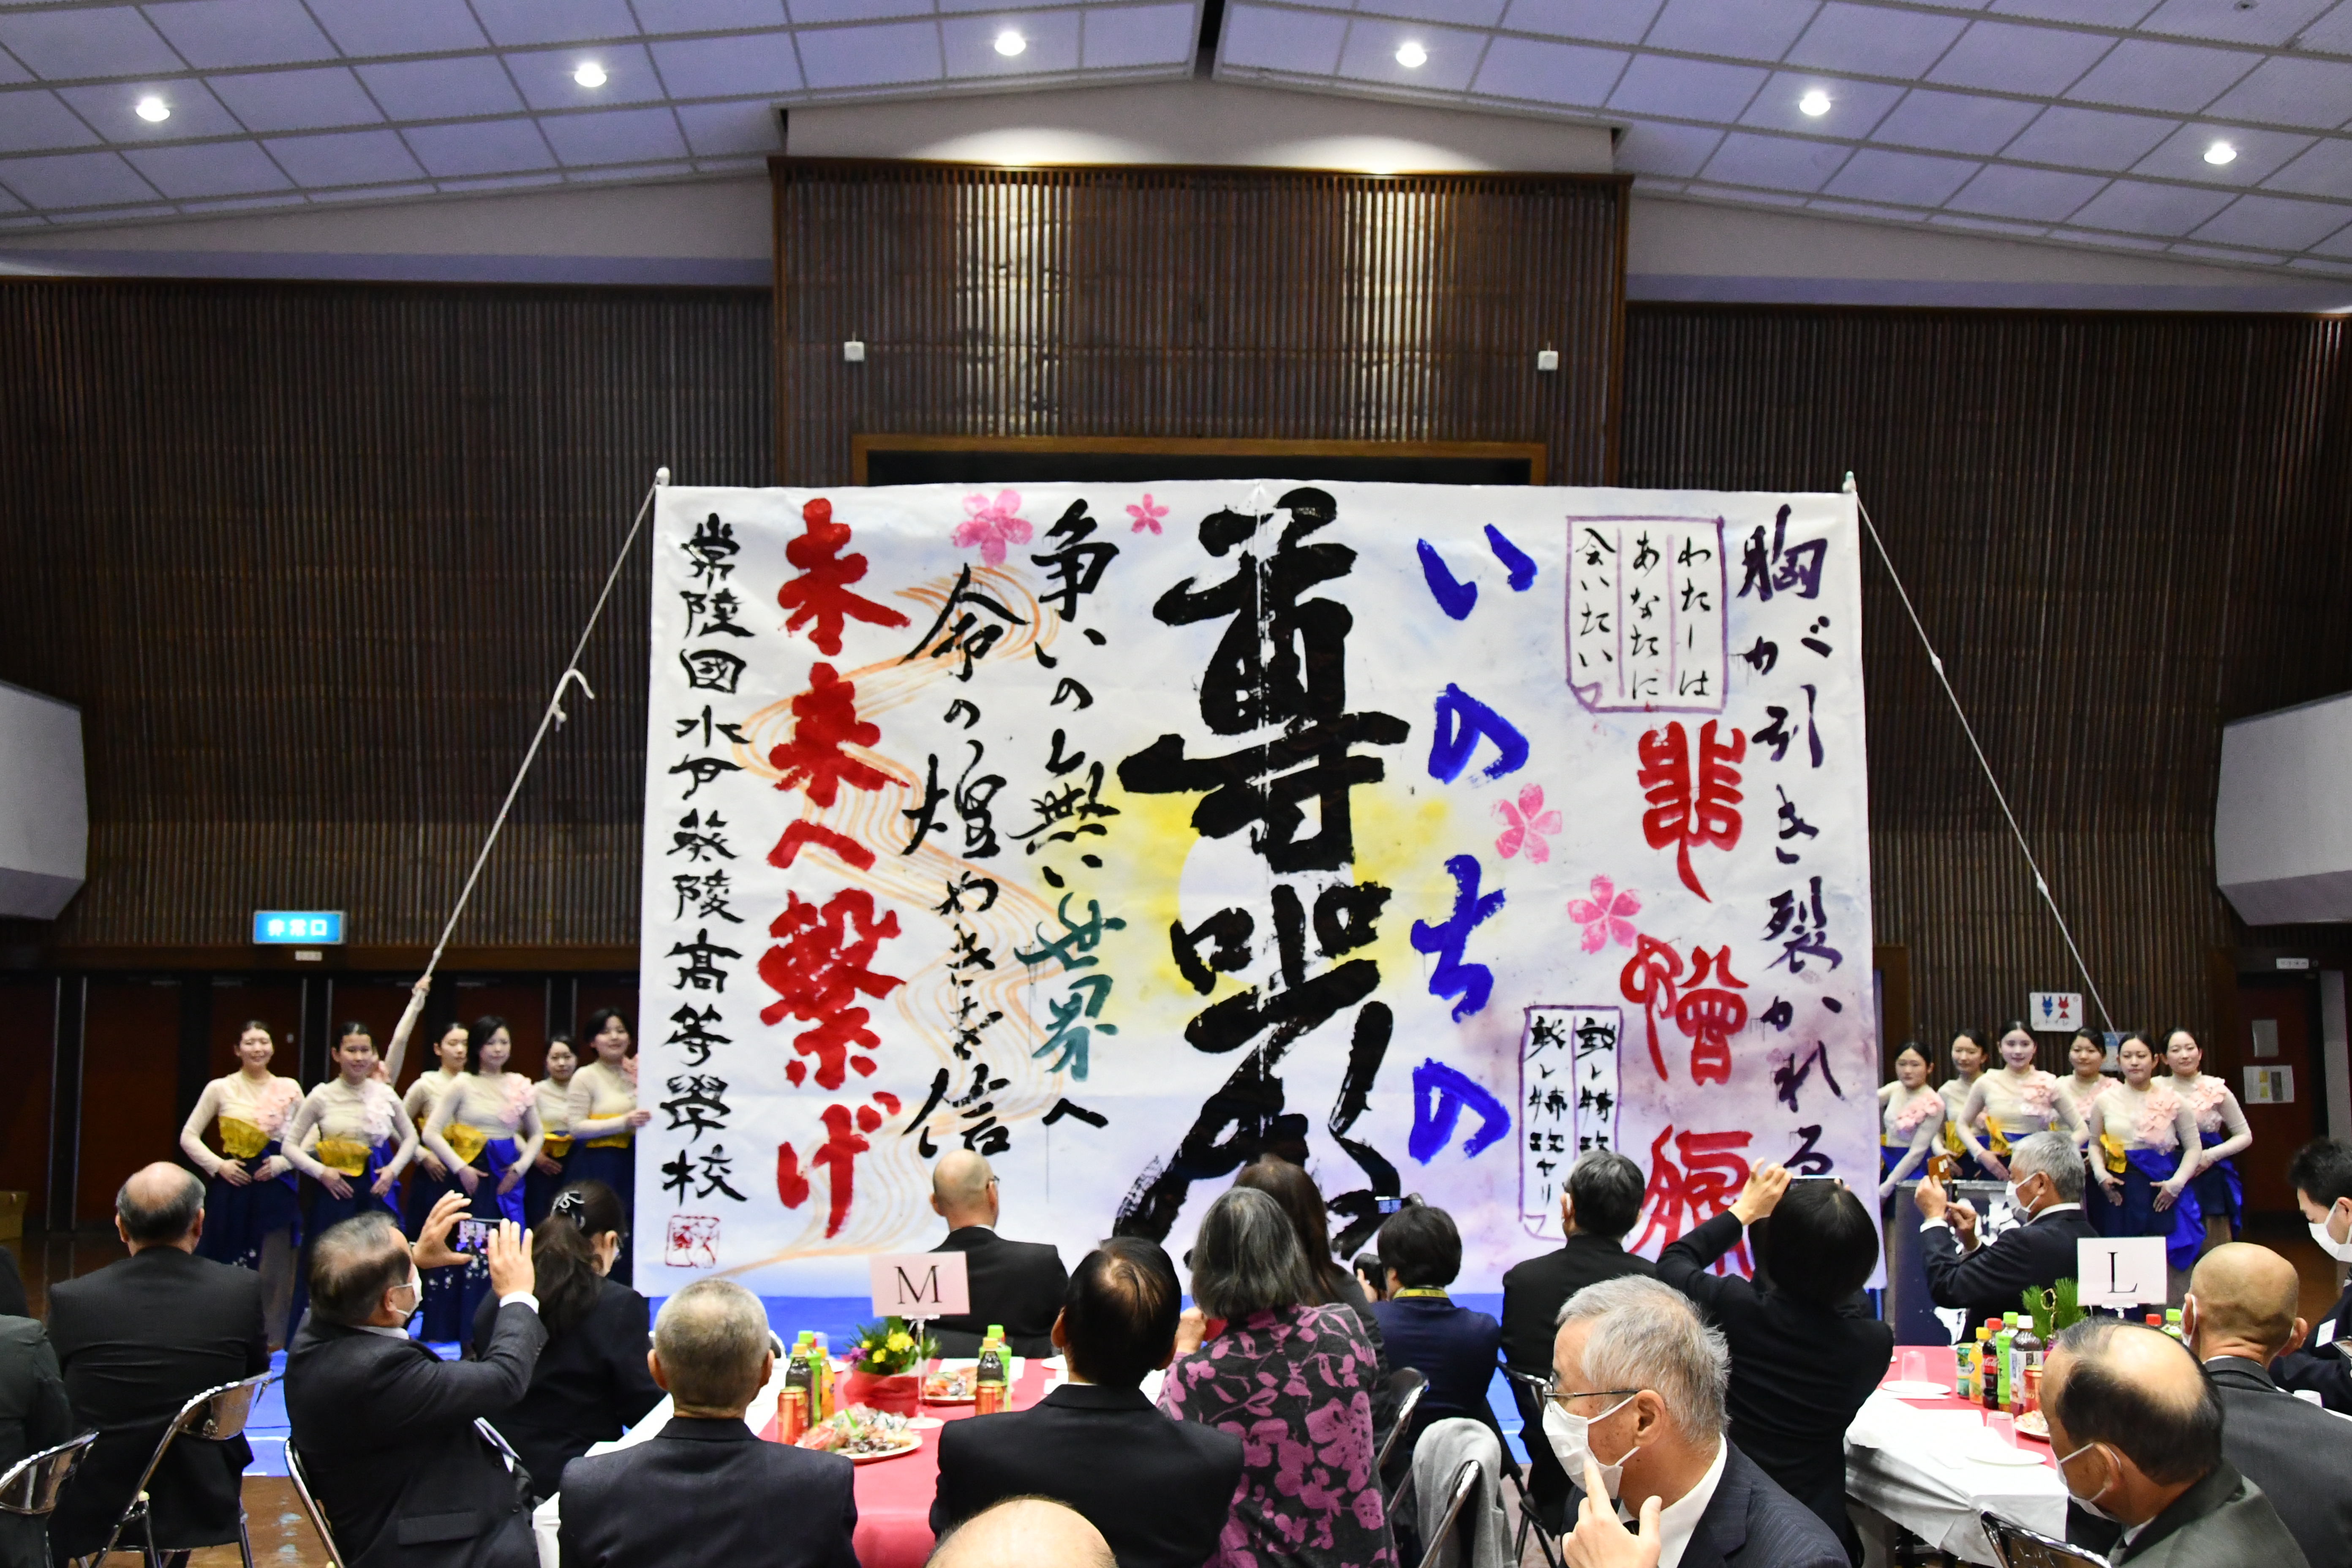 胸が引き裂かれる
わたしは
あなたに
会いたい
悲憎
いのちの
尊
争いの無い世界へ
命の輝やきを信
未来へ繋げ
常陸國水戸葵陵高等學校
非常口
M
L